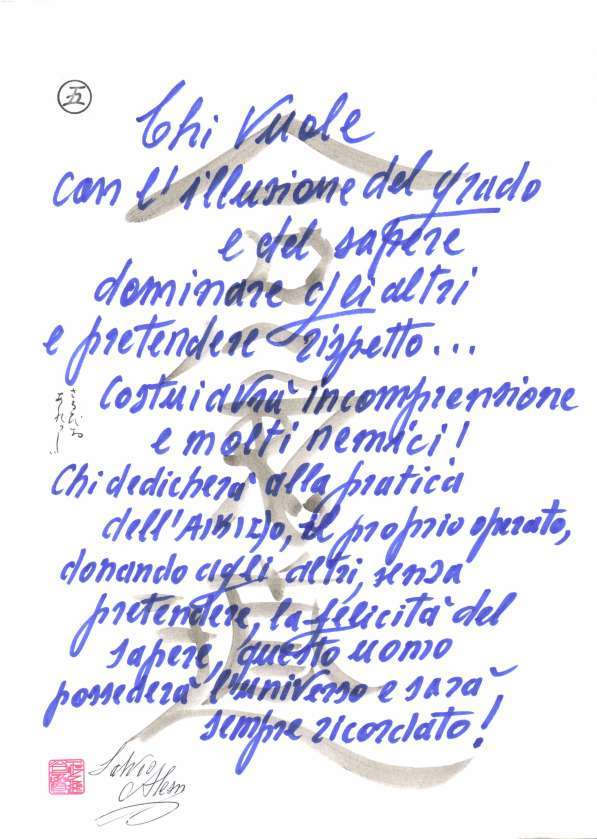 五
Chi vuole
con l'illusione del grado
e del sapere
dominare gli altri
e pretendere rispetto...
Costui avrà incomprensione
e molti nemici!
Chi dedicherà alla pratica
dell'AIKIDO, il proprio operato,
donando agli altri, senza
pretendere, la felicità del
sapere, questo uomo
possederà l'universo e sarà
sempre ricordato!
合氣道